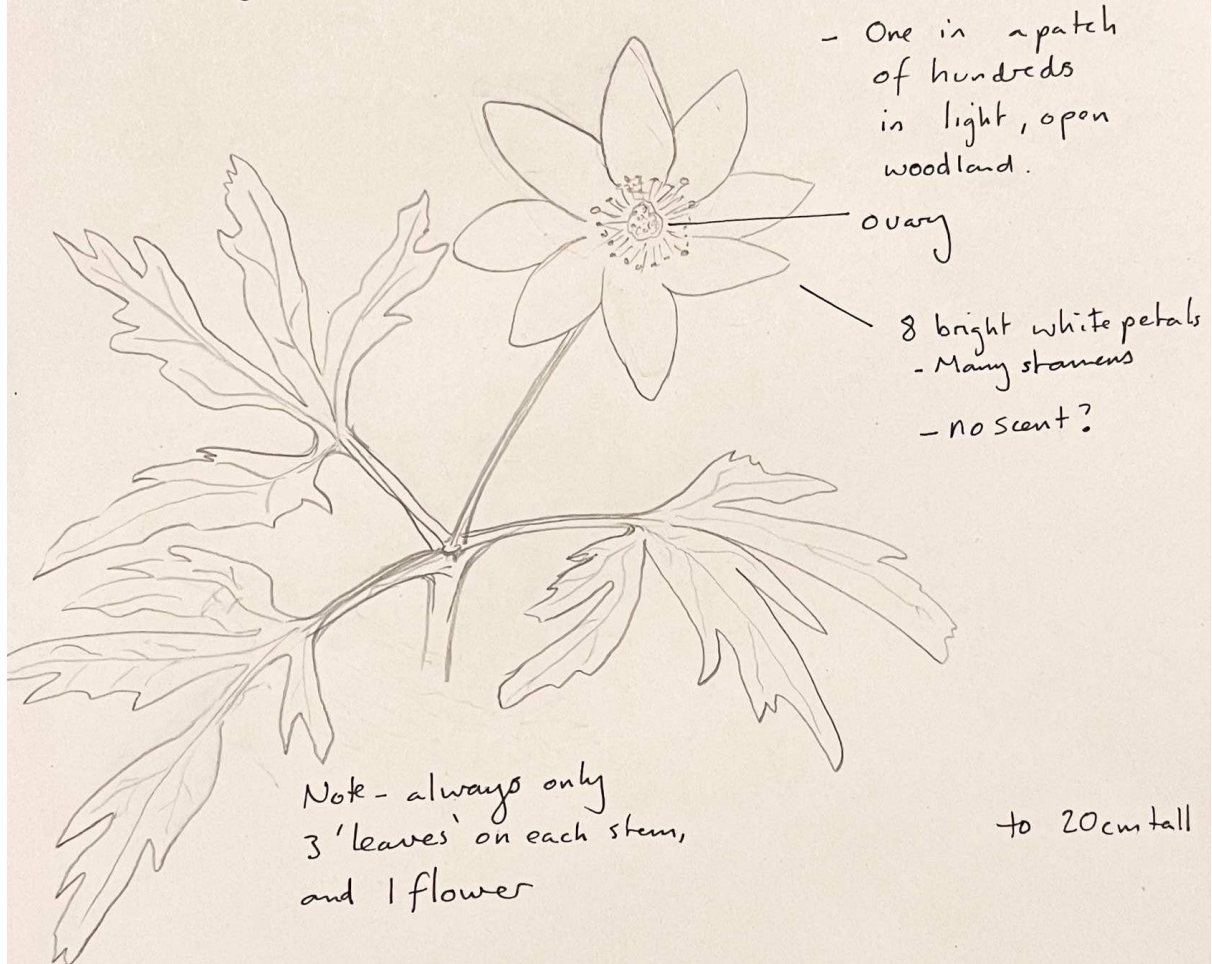 - One in a patch
of hundreds
in light, open
woodland.
ovary
8 bright white petals
- Many stamens
- no scent?
Note - always only
3 'leaves' on each stem,
and 1 flower
to 20cm tall